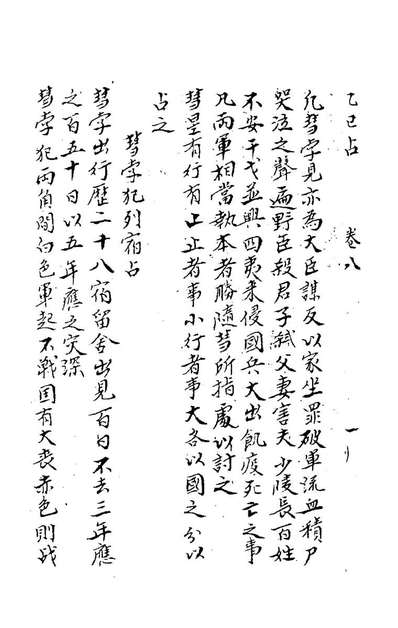 乙巳占　卷八　一
凡彗孛見亦為大臣謀反以家坐罪破軍流血積尸
哭泣之聲遍野臣殺君子弒父妻害夫少陵長百姓
不安干戈並興四夷来侵國兵大出飢疫死亡之事
凡兩軍相當執本者勝隨彗所指處以討之
彗星有行有止止者事小行者事大各以國之分以
占之
彗孛犯列宿占
彗孛出行歷二十八宿留舍出見百日不去三年應
之百五十日以五年應之災深
彗孛犯兩角間白色軍起不戰国有大喪赤色則战